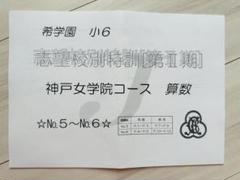 希学園 小6
志望校別特訓[第Ⅱ期]
神戸女学院コース 算数
☆No.5～No.6☆